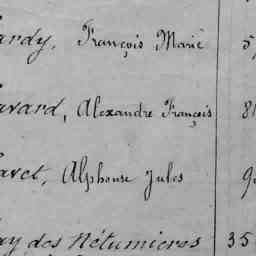 ardy, François Marie 5
avard, Alexandre François 8
avet, Alphonse Jules 9
ay des Nétumieres 35